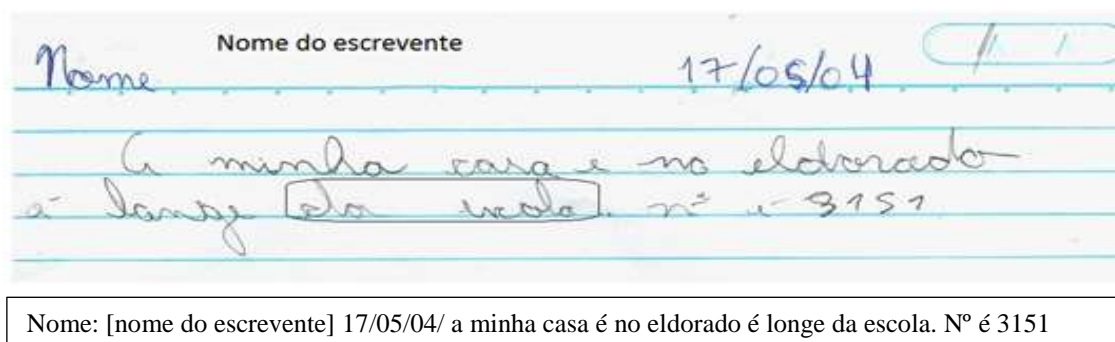 Nome do escrevente
Nome 17/05/04
A minha casa e no eldorado
é longe da escola. nº é 3151
Nome: [nome do escrevente] 17/05/04/ a minha casa é no eldorado é longe da escola. Nº é 3151